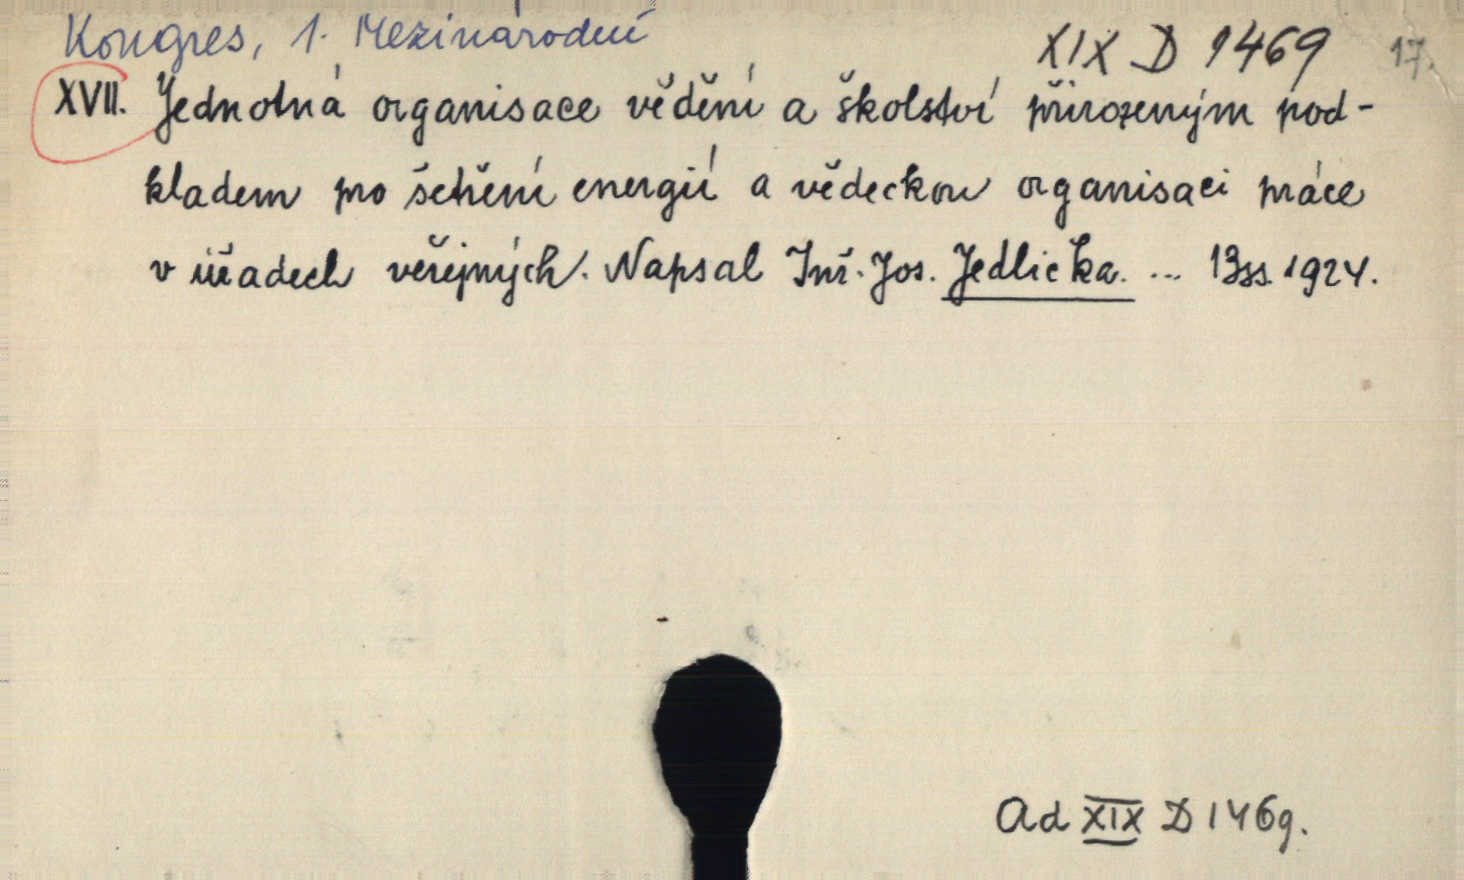 Kongres, 1. Mezinárodní
XIX D 1469 17.
XVII. Jednotná organisace vědění a školství přirozeným pod-
kladem pro šetření energií a vědeckou organisaci práce
v úřadech veřejných. Napsal Inž. Jos. Jedlička. ... 13ss. 1924.
Ad XIX D 1469.